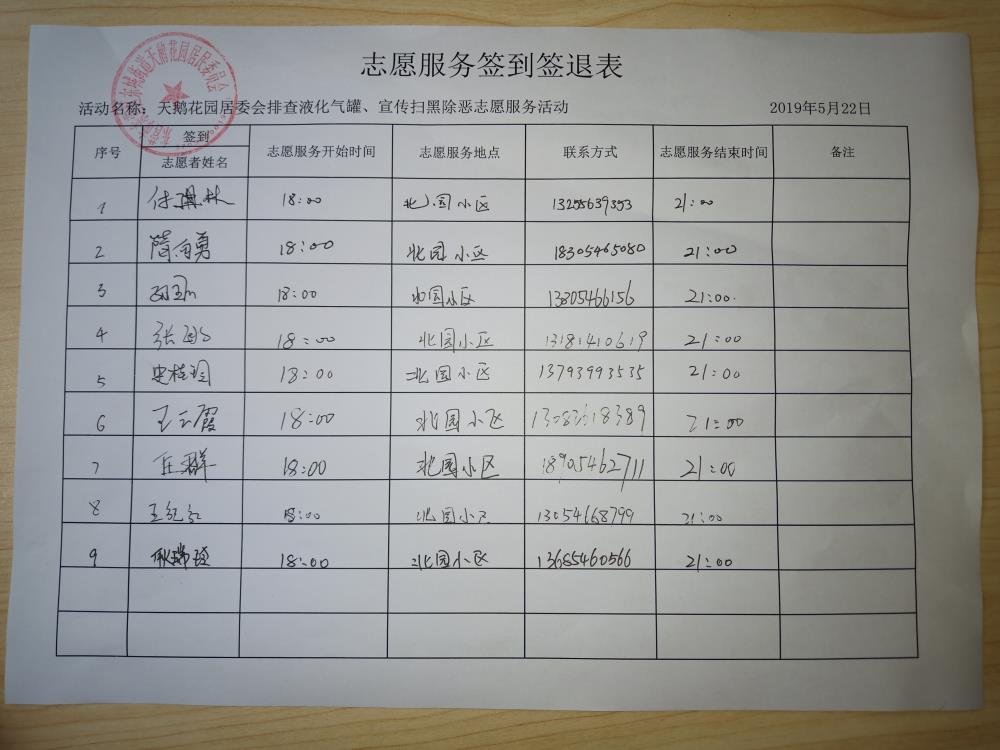 志愿服务签到签退表
活动名称：天鹅花园居委会排查液化气罐、宣传扫黑除恶志愿服务活动 2019年5月22日
序号 签到 志愿者姓名 志愿服务开始时间 志愿服务地点 联系方式 志愿服务结束时间 备注
1 18:00 北园小区 13255639353 21:00
2 隋向勇 18:00 北园小区 18305465080 21:00
3 18:00 北园小区 13305466156 21:00
4 张 18:00 北园小区 13181410619 21:00
5 史桂 18:00 北园小区 13793993535 21:00
6 王云霞 18:00 北园小区 21:00
7 任群 18:00 北园小区 18905462711 21:00
8 王纪红 18:00 北园小区 13054668799 21:00
9 耿瑞 18:00 北园小区 13685460566 21:00